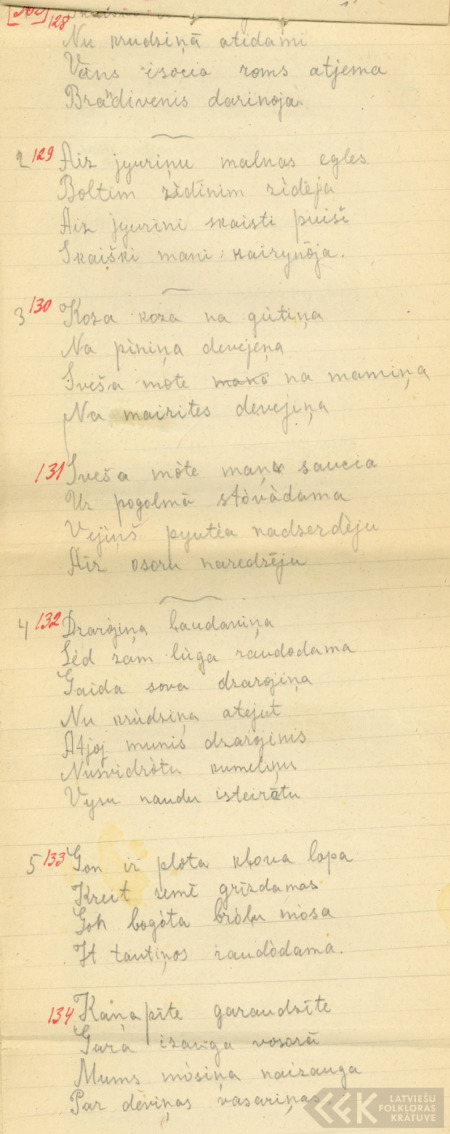 128
Nu krudziņā atidami
Vāns īsocia roms atjema
Brandivenis darinoja.
2 129 Aiz jyuriņu malnas egles
Boltim zìdìnim zìdèja
Aiz jyurini skaisti puiši
Skaiški mani zairynōja.
3 130 Koza koza na gùtiņa
Na pìniņa devejeņa
Sveša mòte mako na mamiņa
Na mairites devejiņa
131 Sveša mòte maņs saucia
Uz pogolmā stòvàdama
Vejiņš pyutèa nadzerdèju
Aiz osoru naredzēju
4 132 Dzarojiņa ļaudaviņa
Sèd zam lùga raudodama
Gaida sova dzarojiņa
Nu krùdziņa atejut
Atjoj munis dzarojinis
Nusvidròtu kumeliņu
Vysu naudu isteiràtu
5 133 Gon ir plota kļova lopa
Kreit zemī grīzdamas
Gon bogòta bròļu mòsa
It tautiņos raudòdama.
134 Kaņapīte garaudzīte
Garà izauga vosorā
Mums mòsiņa naizauga
Par deviņas vasariņas.
LATVIEŠU
FOLKLORAS
KRĀTUVE